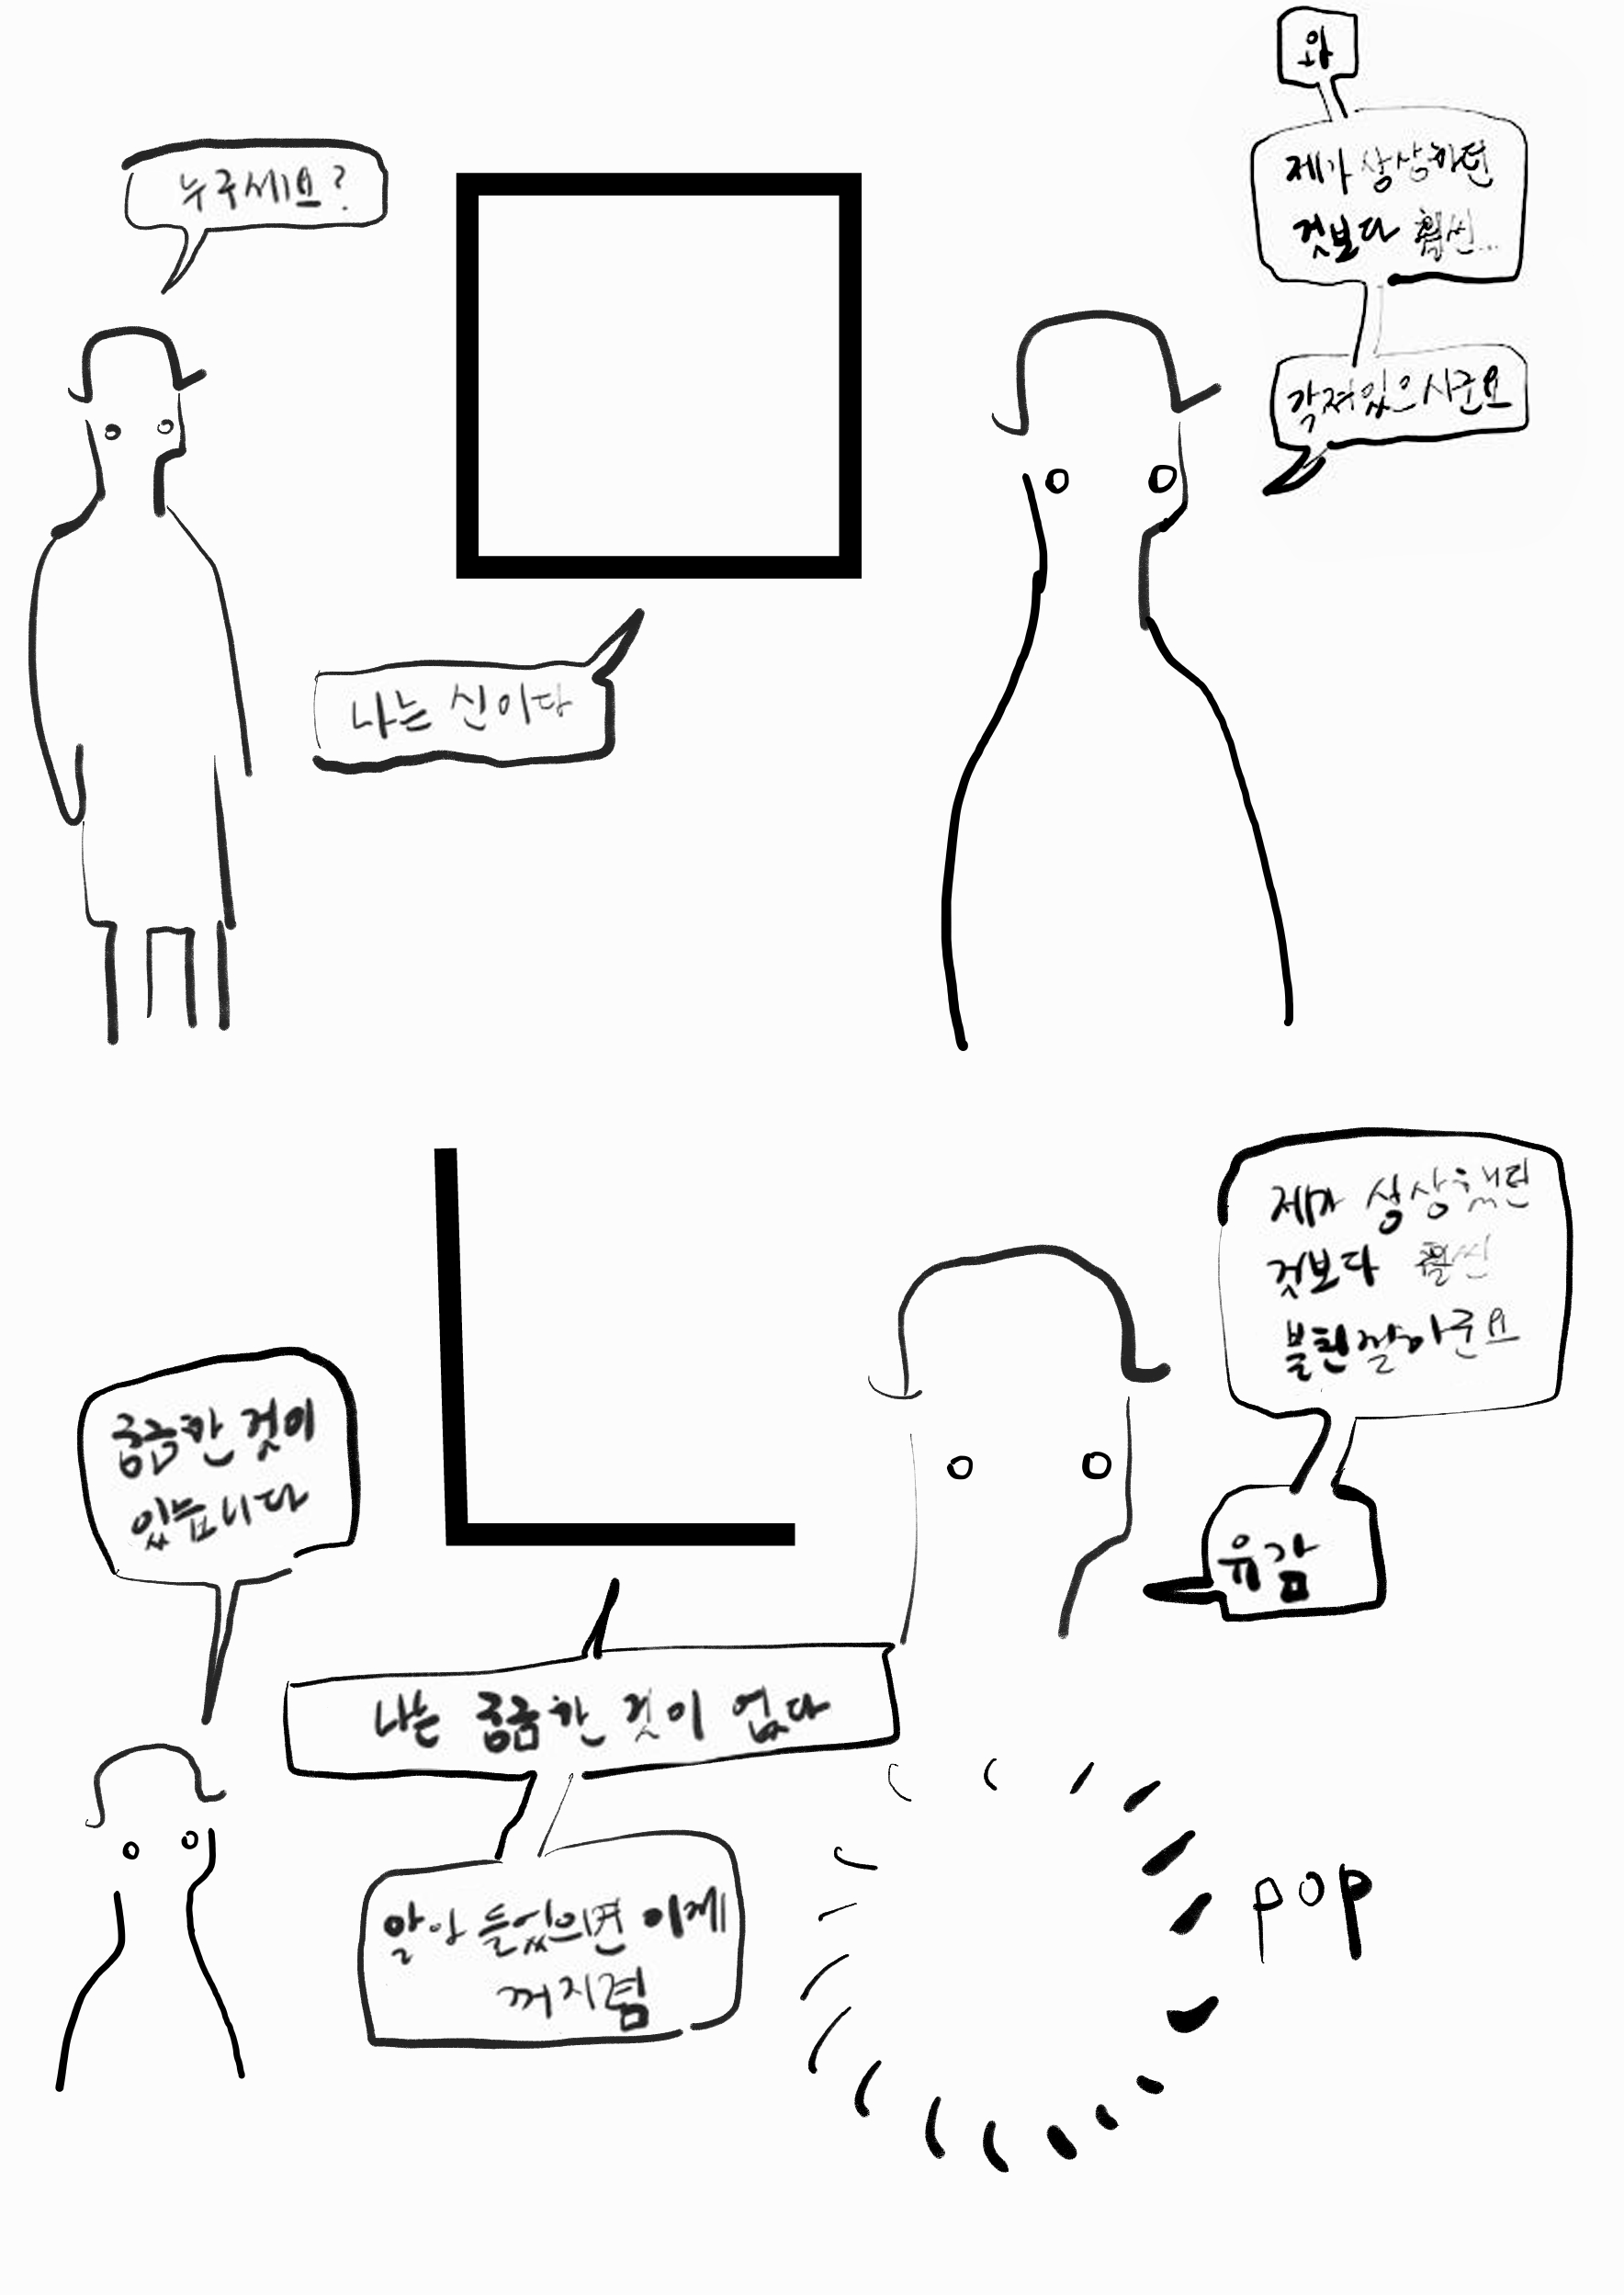 누구세요?
나는 신이다
와
제가 상상하던
것보다 훨씬...
각져있으시군요
궁금한 것이
있습니다
나는 궁금한 것이 없다
알아 들었으면 이제
꺼지렴
제가 상상했던
것보다 훨씬
불친절하군요
유감
pop